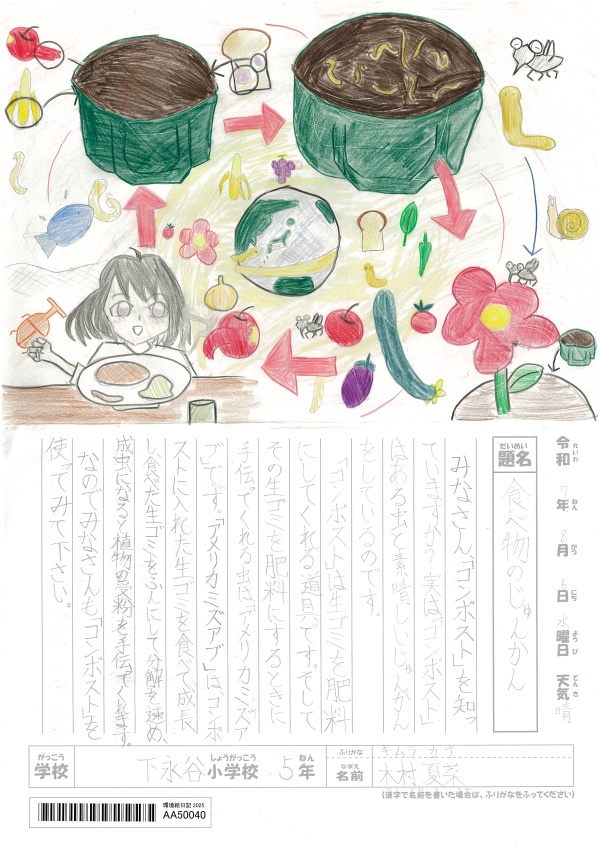 令和 7年 8月 6日 水曜日 天気 晴
れいわ ねん がつ にち ようび てんき
だいめい
題名 食べ物のじゅんかん
みなさん、「コンポスト」を知っ
ていますか?実は「コンポスト」
はある虫と素晴しいじゅんかん
をしているのです。
「コンポスト」は生ゴミを肥料
にしてくれる道具です。そして
その生ゴミを肥料にするときに
手伝ってくれる虫は「アメリカミズア
ブ」です。「アメリカミズアブ」はコンポ
ストに入れた生ゴミを食べて成長
し食べた生ゴミをふんにして分解を速め、
成虫になると植物の受粉を手伝ってくれます。
なのでみなさんも「コンポスト」を
使ってみて下さい。
がっこう しょうがっこう ねん
学校 下永谷小学校 5年
ふりがな キムラ カナ
なまえ
名前 木村 夏菜
(漢字で名前を書いた場合は、ふりがなをふってください)
環境絵日記 2025
AA50040